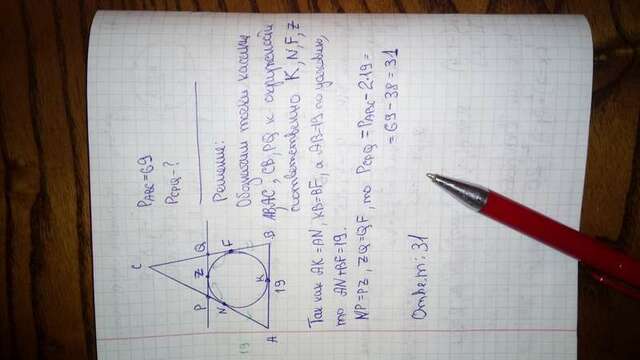 P_ABC=69
P_CPQ-?
Решение:
Обозначим точки касания
AB, AC, CB, PQ к окружности
соответственно K, N, F, Z
C
P
Z
Q
N
F
K
A
B
19
19
Так как AK=AN, KB=BF, а AB=19 по условию,
то AN+BF=19.
NP=PZ, ZQ=QF, то P_CPQ=P_ABC-2·19=
=69-38=31
Ответ: 31